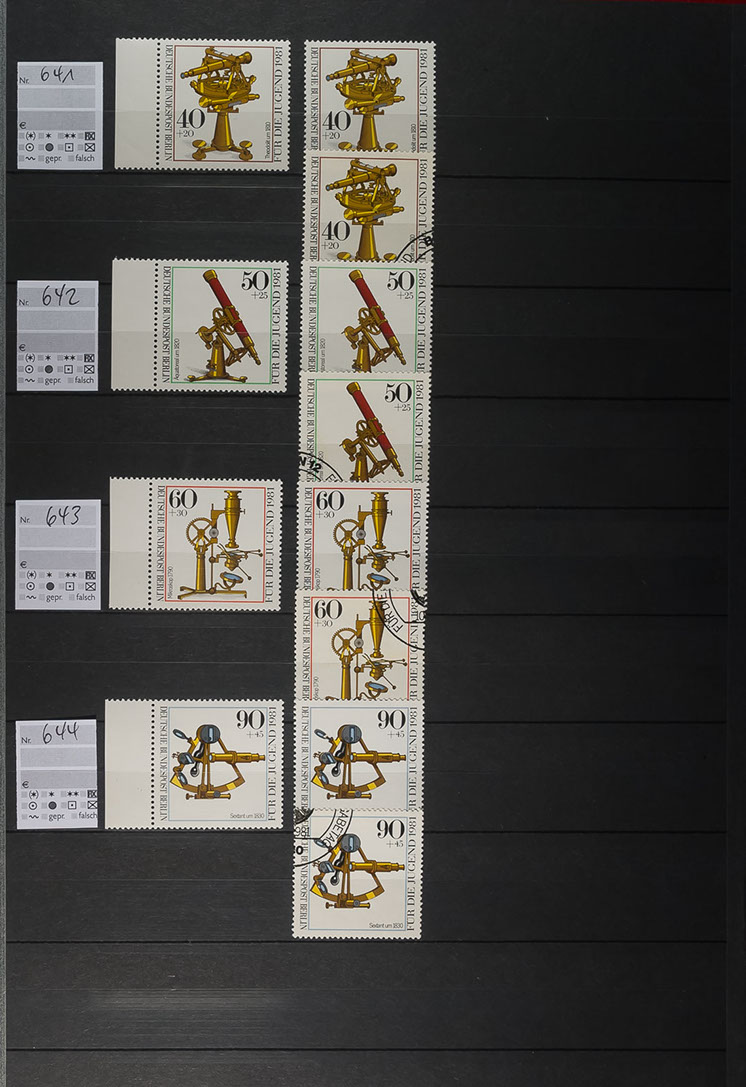 Nr. 641
€
(*) * ** 
gepr. falsch
40
+20
Theodolit um 1810
DEUTSCHE BUNDESPOST BERLIN
FÜR DIE JUGEND 1981
40
+20
DEUTSCHE BUNDESPOST BERLIN
FÜR DIE JUGEND 1981
40
+20
DEUTSCHE BUNDESPOST BER
FÜR DIE JUGEND 1981
Nr. 642
€
(*) * **
gepr. falsch
50
+25
Äquatoreal um 1820
DEUTSCHE BUNDESPOST BERLIN
FÜR DIE JUGEND 1981
50
+25
DEUTSCHE BUNDESPOST BERLIN
FÜR DIE JUGEND 1981
50
+25
DEUTSCHE BUNDESPOST
FÜR DIE JUGEND 1981
N 12
Nr. 643
€
(*) * **
gepr. falsch
60
+30
Mikroskop 1790
DEUTSCHE BUNDESPOST BERLIN
FÜR DIE JUGEND 1981
60
+30
skop 1790
DEUTSCHE BUNDESPOST BER
FÜR DIE JUGEND 1981
FÜR DIE
60
+30
skop 1790
DEUTSCHE BUNDESPOST BER
FÜR DIE JUGEND 198
Nr. 644
€
(*) * **
gepr. falsch
90
+45
Sextant um 1830
DEUTSCHE BUNDESPOST BERLIN
FÜR DIE JUGEND 1981
90
+45
DEUTSCHE BUNDESPOST BERLIN
FÜR DIE JUGEND 1981
90
+45
Sextant um 1830
BUNDESPOST BERLIN
FÜR DIE JUGEND 1981
ABETAG